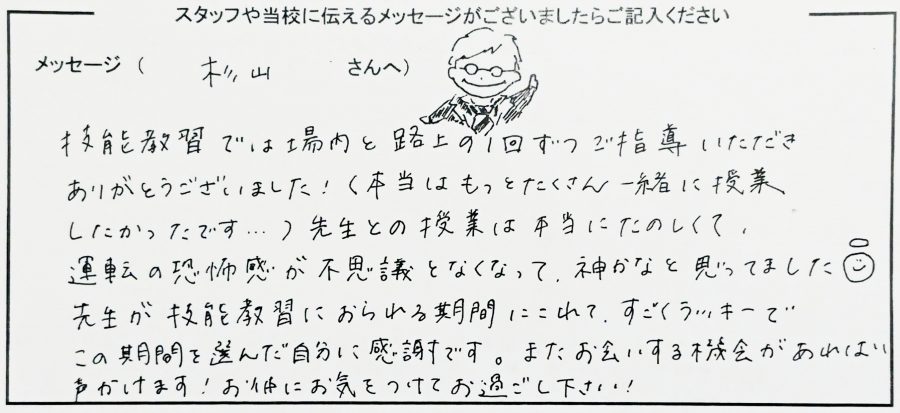 スタッフや当校に伝えるメッセージがございましたらご記入ください
メッセージ ( 杉山 さんへ)
技能教習では場内と路上の1回ずつご指導いただき
ありがとうございました!(本当はもっとたくさん一緒に授業
したかったです…)先生との授業は本当にたのしくて、
運転の恐怖感が不思議となくなって、神かなと思ってました
先生が技能教習におられる期間にこれて、すごくラッキーで
この期間を選んだ自分に感謝です。またお会いする機会があればい
声かけます!お体にお気をつけてお過ごし下さい!